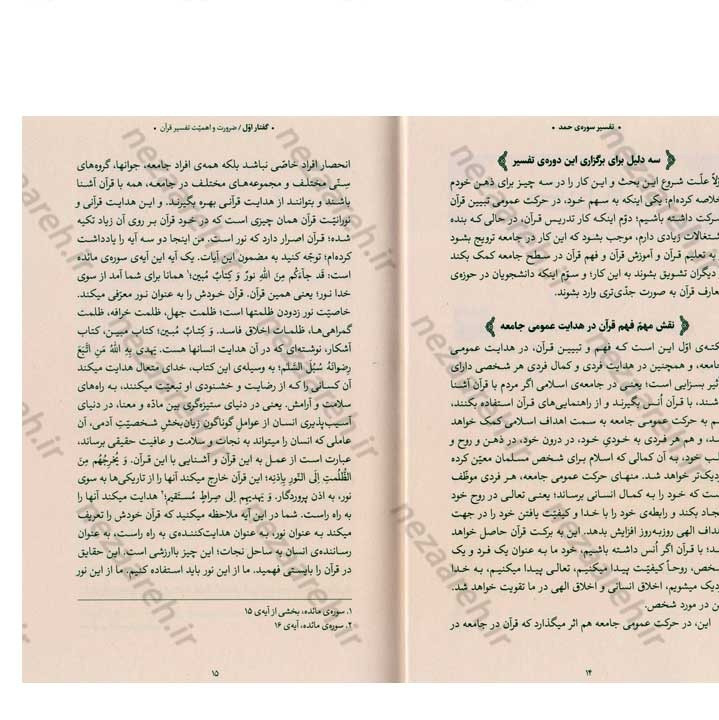 • تفسیر سوره‌ی حمد •
سه دلیل برای برگزاری این دوره‌ی تفسیر
علّت شروع این بحث و این کار را در سه چیز برای ذهن خودم
خلاصه کرده‌ام؛ یکی اینکه به سهم خود، در حرکت عمومی تبیین قرآن
شرکت داشته باشیم؛ دوّم اینکه کار تدریس قرآن، در حالی که بنده
اشتغالات زیادی دارم، موجب بشود که این کار در جامعه ترویج بشود
به تعلیم قرآن و آموزش قرآن و فهم قرآن در سطح جامعه کمک بکند
دیگران تشویق بشوند به این کار؛ و سوّم اینکه دانشجویان در حوزه‌ی
معارف قرآن به صورت جدّی‌تری وارد بشوند.
نقش مهمّ فهم قرآن در هدایت عمومی جامعه
نکته‌ی اوّل این است که فهم و تبیین قرآن، در هدایت عمومی
جامعه، و همچنین در هدایت فردی و کمال فردی هر شخصی دارای
تأثیر بسزایی است؛ یعنی در جامعه‌ی اسلامی اگر مردم با قرآن آشنا
باشند، با قرآن اُنس بگیرند و از راهنمایی‌های قرآن استفاده بکنند،
هم به حرکت عمومی جامعه به سمت اهداف اسلامی کمک خواهد
شد، و هم هر فردی به خودیِ خود، در درون خود، در ذهن و روح و
قلب خود، به آن کمالی که اسلام برای شخص مسلمان معیّن کرده
نزدیک‌تر خواهد شد. منهای حرکت عمومی جامعه، هر فردی موظّف
است که خود را به کمال انسانی برساند؛ یعنی تعالی در روح خود
ایجاد بکند و رابطه‌ی خود را با خدا و کیفیّت یافتن خود را در جهت
اهداف الهی روزبه‌روز افزایش بدهد. این به برکت قرآن حاصل خواهد
شد؛ با قرآن اگر اُنس داشته باشیم، خود ما به عنوان یک فرد و یک
شخص، روحاً کیفیّت پیدا میکنیم، تعالی پیدا میکنیم، به خدا
نزدیک میشویم، اخلاق انسانی و اخلاق الهی در ما تقویت خواهد شد.
این در مورد شخص.
این، در حرکت عمومی جامعه هم اثر میگذارد که قرآن در جامعه در
۱۴
• گفتار اوّل / ضرورت و اهمیّت تفسیر قرآن •
انحصار افراد خاصّی نباشد بلکه همه‌ی افراد جامعه، جوانها، گروه‌های
سنّی مختلف و مجموعه‌های مختلف در جامعه، همه با قرآن آشنا
باشند و بتوانند از هدایت‌های قرآنی بهره بگیرند. و این هدایت قرآنی و
نورانیّت قرآن همان چیزی است که در خود قرآن بر روی آن زیاد تکیه
شده؛ قرآن اصرار دارد که نور است. من اینجا دو سه آیه را یادداشت
کرده‌ام؛ توجّه کنید به مضمون این آیات. یک آیه این آیه‌ی سوره‌ی مائده
است: قَد جاءَکُم مِنَ اللهِ نورٌ وَ کِتابٌ مُبین؛۱ همانا برای شما آمد از سوی
خدا نور؛ یعنی همین قرآن. قرآن خودش را به عنوان نور معرّفی میکند.
خاصیّت نور زدودن ظلمتها است؛ ظلمت جهل، ظلمت خرافه، ظلمت
گمراهی‌ها، ظلمات اخلاق فاسد. وَ کِتابٌ مُبین؛ کتاب مبین، کتاب
آشکار، نوشته‌ای که در آن هدایت انسانها هست. یَهدی بِهِ اللهُ مَنِ اتَّبَعَ
رِضوانَهُ سُبُلَ السَّلم؛ به وسیله‌ی این کتاب، خدای متعال هدایت میکند
آن کسانی را که از رضایت و خشنودی او تبعیّت میکنند، به راه‌های
سلامت و آرامش. یعنی در دنیای ستیزه‌گری بین مادّه و معنا، در دنیای
آسیب‌پذیری انسان از عوامل گوناگون زیان‌بخش شخصیّت آدمی، آن
عاملی که انسان را میتواند به نجات و سلامت و عافیت حقیقی برساند،
عبارت است از عمل به این قرآن و آشنایی با این قرآن. وَ یُخرِجُهُم مِنَ
الظُّلُمتِ اِلَی النّورِ بِاِذنِه؛ این قرآن خارج میکند آنها را از تاریکی‌ها به سوی
نور، به اذن پروردگار. وَ یَهدیهِم اِلی صِراطٍ مُستَقیم؛۲ هدایت میکند آنها را
به راه راست. شما در این آیه ملاحظه میکنید که قرآن خودش را تعریف
میکند به عنوان نور، به عنوان هدایت‌کننده‌ی به راه راست، به عنوان
رساننده‌ی انسان به ساحل نجات؛ این چیز باارزشی است. این حقایق
در قرآن را بایستی فهمید. ما از این نور باید استفاده کنیم. ما از این نور
۱. سوره‌ی مائده، بخشی از آیه‌ی ۱۵
۲. سوره‌ی مائده، آیه‌ی ۱۶
۱۵
nezaareh.ir